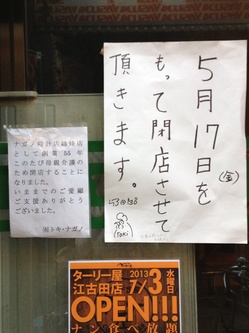 5月17日を
(金)
もって閉店させて
頂きます。
Toki
ナガノ時計店錦綺店
として創業55年
このたび母親介護の
ため閉店することに
なりました。
いままでのご愛顧
ご支援ありがとう
ございました。
㈲トキ・ナガノ
ターリー屋
江古田店
2013
7/3
水曜日
OPEN!!!
ナン食べ放題